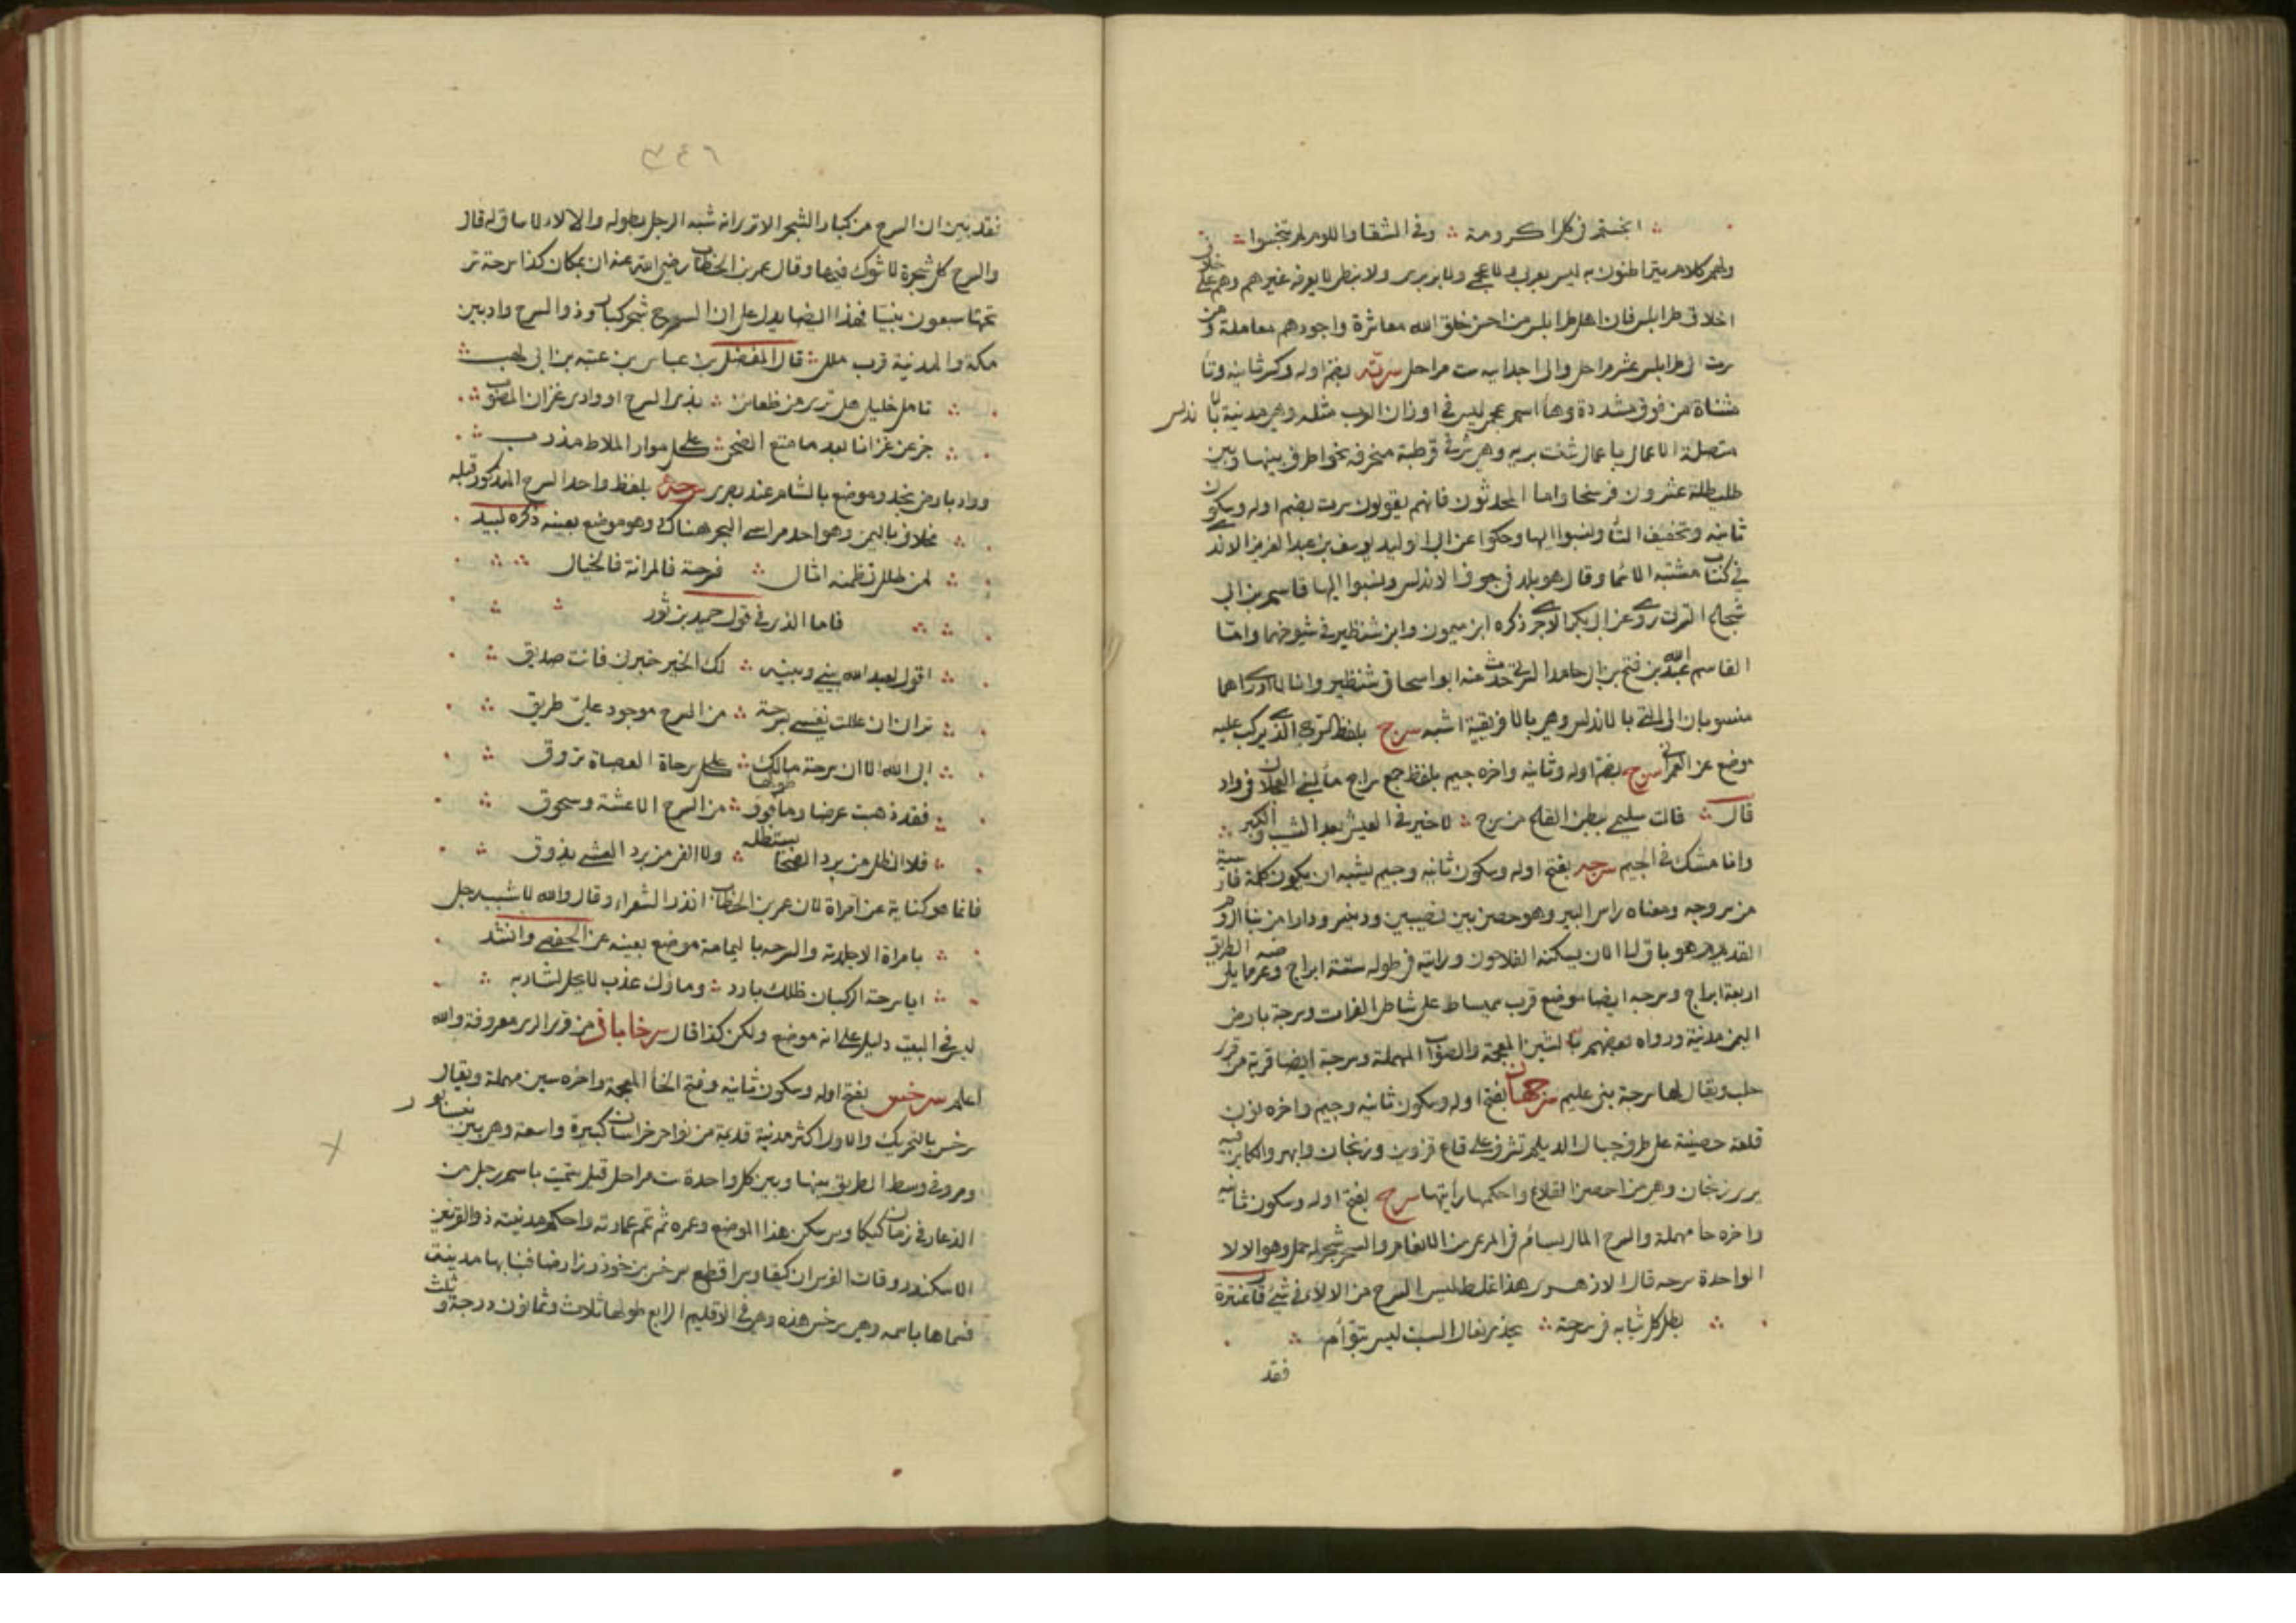 ابخستم في كل اكرومة وفي الشقا واللوم لم تبخسوا
ولهم كلام يتراطنون به ليس بعربي ولا عجمي ولا بربري ولا قبطي لا يعرفه غيرهم وهم على خلاف
اخلاق طرابلس فان اهل طرابلس من احسن خلق الله معاشرة واجودهم معاملة ومن
سرت الى طرابلس عشر مراحل والى اجدابيه ست مراحل سرته بضم اوله وكسر ثانيه وتا
مثناة من فوق مشددة وها اسم عجمي ليس في اوزان العرب مثله وهي مدينة بالاندلس
متصلة الاعمال باعمال شنت بريه وهي شرقي قرطبة منحرفة نحو الجوف بينها وبين
طليطلة عشرون فرسخا واما المحدثون فانهم يقولون سرت بضم اوله وسكون
ثانيه وتخفيف التا ونسبوا اليها وحكوا عن ابي الوليد يوسف بن عبد العزيز الاندي
في كتاب مشتبه الاسما وقال هو بلد في جوف الاندلس ونسبوا اليها قاسم بن ابي
شجاع السرتي روى عن ابي بكر الاجري ذكره ابن ميمون وابن شنظير في شيوخهما واما
القاسم عبد الله بن فتح بن ابي حامد السرتي حدث عنه ابو اسحاق شنظير وانا لا ادري اهما
منسوبان الى التي بالاندلس وهي بالافريقية اشبه سرج بلفظ السرج الذي يركب عليه
موضع عن العمراني سرج بضم اوله وثانيه واخره جيم بلفظ جمع سراج ما لبني العجلان في واد
قال قالت سليمى ببطن القاع من سرج لا خير في العيش بعد الشيب والكبر
وانا مشك في الجيم سرجه بفتح اوله وسكون ثانيه وجيم يشبه ان يكون كلمة فارسية
من سروجه ومعناه راس البير وهو حصن بين نصيبين ودنيسر ودارا من بنا الروم
القديم وهو باق الى الان يسكنه الفلاحون ورايته في طوله ستة ابراج وعرضه مما يلي الطريق
اربعة ابراج وسرجه ايضا موضع قرب سميساط على شاطي الفرات وسرجة بارض
اليمن مدينة ورواه بعضهم بالشين المعجمة والصواب المهملة وسرجة ايضا قرية من قرى
حلب ويقال لها سرجة بني عليم سرجهان بفتح اوله وسكون ثانيه وجيم واخره نون
قلعة حصينة على طرف جبال الديلم تشرف على قاع قزوين وزنجان وابهر والكاين فيه
يرى زنجان وهي من احصن القلاع واحكمها رايتها سرح بفتح اوله وسكون ثانيه
واخره حا مهملة والسرح المال يسام في المرعى من الانعام والسرح شجر له حمل وهو الالا
الواحدة سرحه قال الازهري هذا غلط ليس السرح من الالا في شي قال عنترة
بطل كان ثيابه في سرحة يحذى نعال السبت ليس بتوام
فقد
٣٤٦
فقد بين ان السرح من كبار الشجر الا ترى انه شبه الرجل بطوله والالا لا ساق له قال
والسرح كل شجرة لا شوك فيها وقال عمر بن الخطاب رضي الله عنه ان بمكان كذا سرحة سر
تحتها سبعون نبيا فهذا ايضا يدل على ان السرح شجر كبار وذو السرح واد بين
مكة والمدينة قرب ملل قال الفضل بن عباس بن عتبه بن ابي لهب
تامل خليلي هل ترى من ظعائن بذي السرح او وادي غران المصوب
جزعن غرانا بعد ما متع الضحى على كل موار الملاط مدرب
وواد بارض نجد وموضع بالشام عند بصرى سرحة بلفظ واحد السرح المذكور قبله
مخلاف باليمن وهو احد مراسي البحر هناك وهو موضع بعينه ذكره لبيد
لمن طلل تضمنه اثال فسرحة فالمرانة فالخيال
فاما الذي في قول حميد بن ثور
اقول لعبد الله بيني وبينه لك الخير خبرني فانت صديق
تراني ان عللت نفسي بسرحة من السرح موجود علي طريق
ابى الله الا ان سرحة مالك على كل سرحاة العضاة تروق
فقد ذهبت عرضا وما فوق طولها من السرح الا عشة وسحوق
فلا الظل من برد الضحى يستظله ولا الفي من برد العشي يذوق
فانما هو كناية عن امراة لان عمر بن الخطاب انذر الشعراء وقال والله لا شبب رجل
بامراة الا جلدته والسرحه باليمامة موضع بعينه عن الحفصي وانشد
ايا سرحة الركبان ظلك بارد وماؤك عذب لا يحل لشاربه
ليس في البيت دليل على انه موضع ولكن كذا قال سرخاباذ من قرى الري معروفة والله
اعلم سرخس بفتح اوله وسكون ثانيه وفتح الخا المعجمة واخره سين مهملة ويقال
سرخس بالتحريك والاول اكثر مدينة قديمة من نواحي خراسان كبيرة واسعة وهي بين نيسابور
ومرو في وسط الطريق بينها وبين كل واحدة ست مراحل قيل سميت باسم رجل من
الذعار في زمان كيكاوس سكن هذا الموضع وعمره ثم تمم عمارته واحكم مدينته ذو القرنين
الاسكندر وقالت الفرس ان كيقاوس اقطع سرخس بن خوذرز ارضا فبنا بها مدينة
فسماها باسمه وهي سرخس هذه وهي في الاقليم الرابع طولها ثلاث وثمانون درجة وثلث